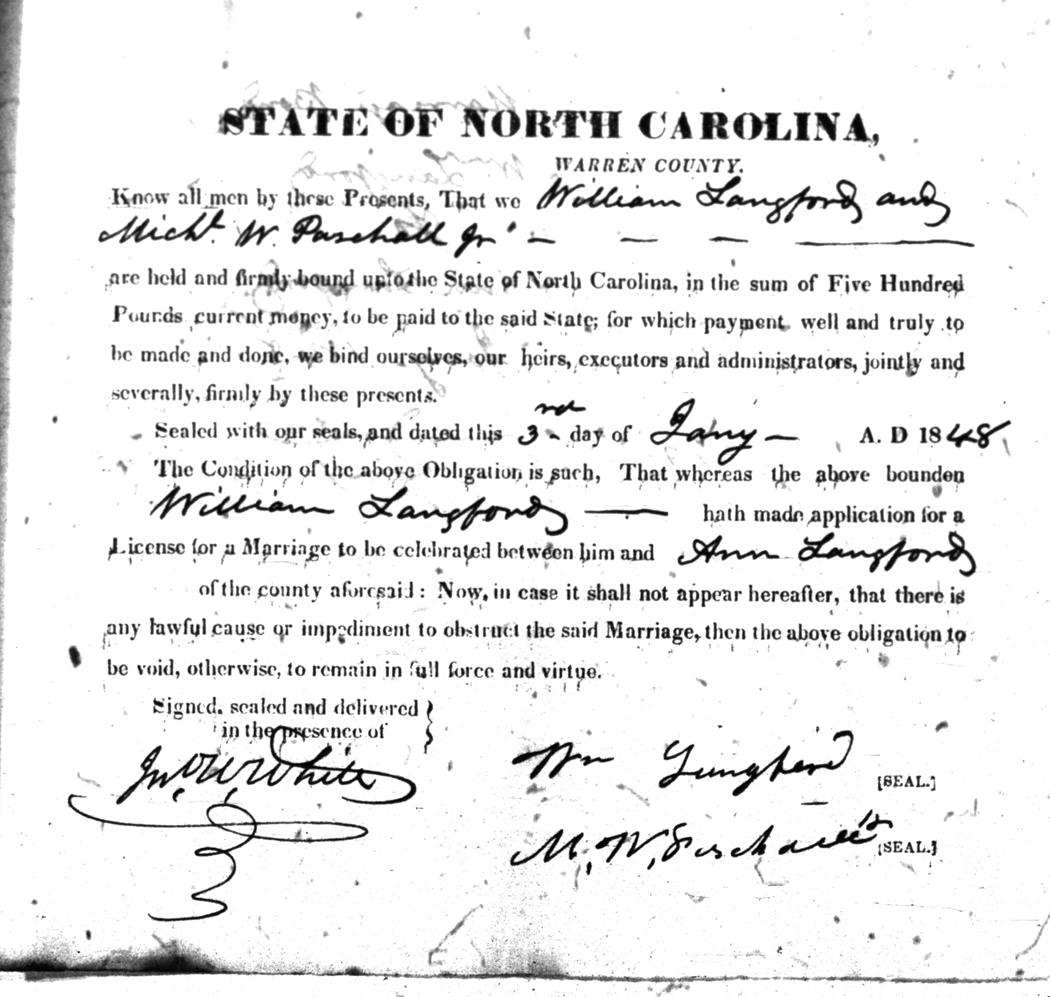 STATE OF NORTH CAROLINA,
WARREN COUNTY.
Know all men by these Presents, That we William Langford and
Michl. W. Paschall Jr
are held and firmly bound unto the State of North Carolina, in the sum of Five Hundred
Pounds current money, to be paid to the said State; for which payment well and truly to
be made and done, we bind ourselves, our heirs, executors and administrators, jointly and
severally, firmly by these presents.
Sealed with our seals, and dated this 3rd day of Jany A. D 1848
The Condition of the above Obligation is such, That whereas the above bounden
William Langford hath made application for a
License for a Marriage to be celebrated between him and Ann Langford
of the county aforesaid: Now, in case it shall not appear hereafter, that there is
any lawful cause or impediment to obstruct the said Marriage, then the above obligation to
be void, otherwise, to remain in full force and virtue.
Signed, sealed and delivered
in the presence of
Jno. W. White
Wm Lungford [SEAL.]
M. W. Paschall Jr [SEAL.]